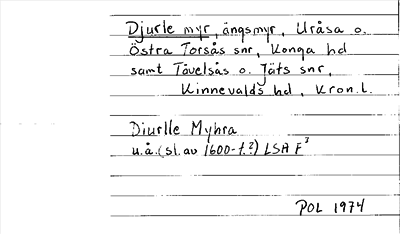 Djurle myr, ängsmyr, Uråsa o.
Östra Torsås snr, Konga hd
samt Tåvelsås o. Jäts snr,
Kinnevalds hd, Kron.l.
Diurlle Myhra
u.å. (sl. av 1600-t.?) LSA F³
POL 1974